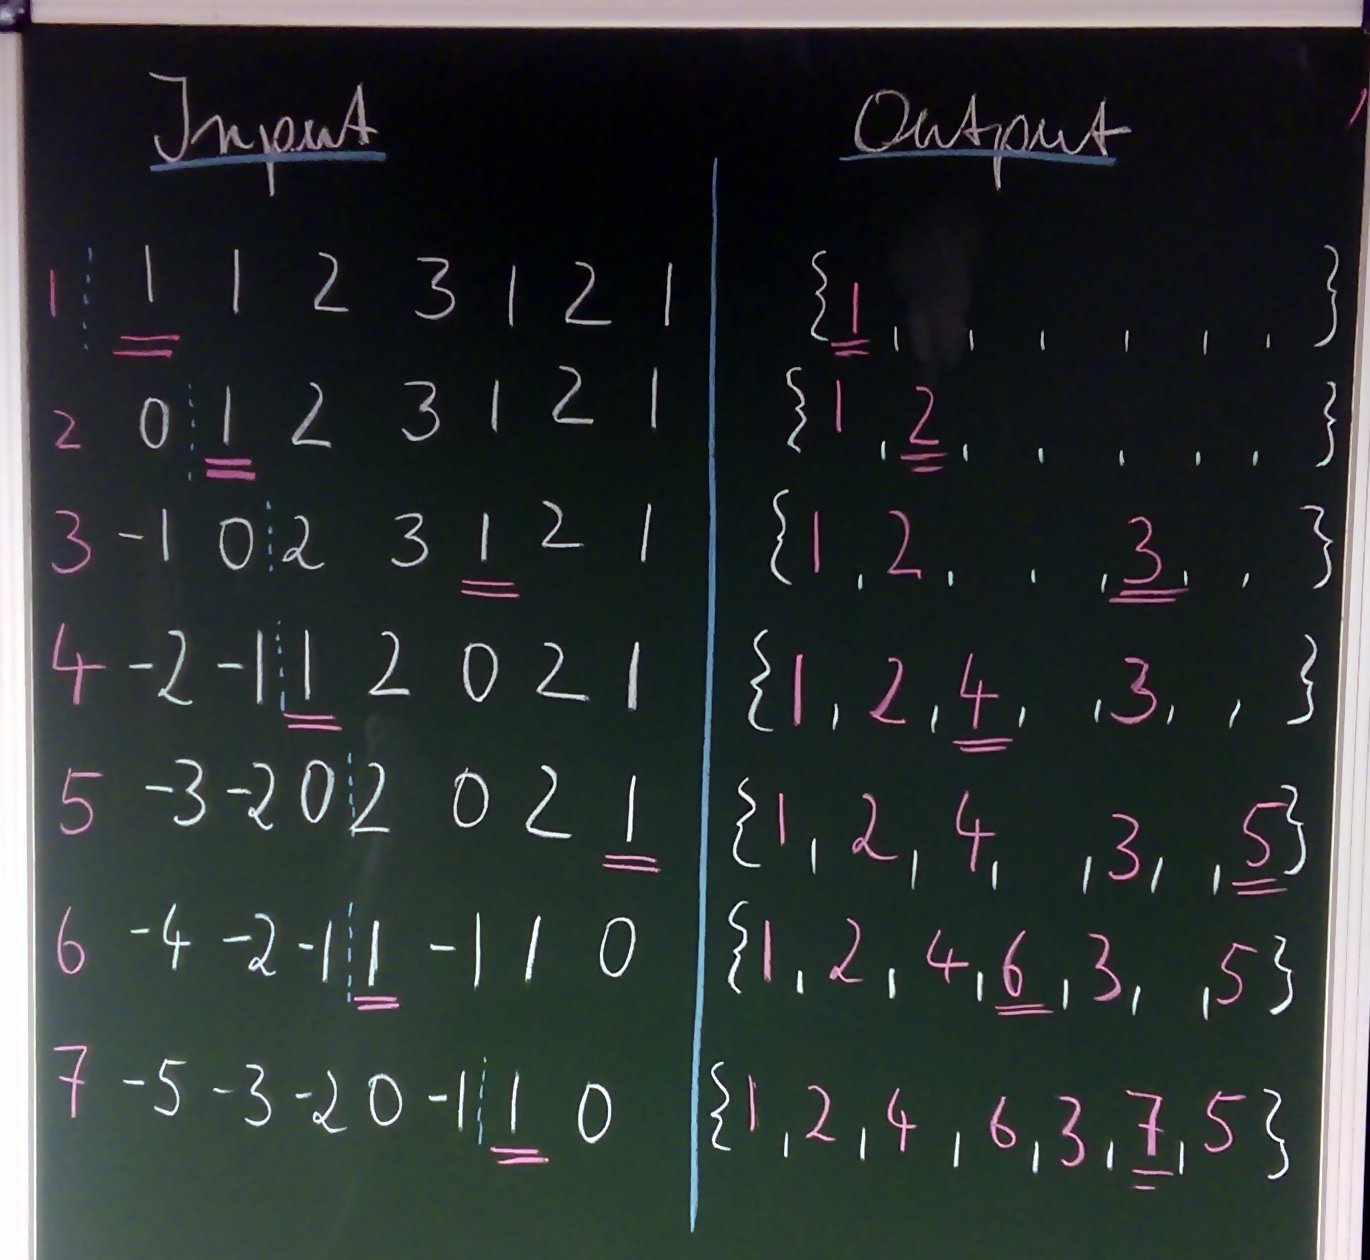 Input Output
1 1 1 2 3 1 2 1 {1, , , , , , }
2 0 1 2 3 1 2 1 {1, 2, , , , , }
3 -1 0 2 3 1 2 1 {1, 2, , , 3, , }
4 -2 -1 1 2 0 2 1 {1, 2, 4, , 3, , }
5 -3 -2 0 2 0 2 1 {1, 2, 4, , 3, , 5}
6 -4 -2 -1 1 -1 1 0 {1, 2, 4, 6, 3, , 5}
7 -5 -3 -2 0 -1 1 0 {1, 2, 4, 6, 3, 7, 5}